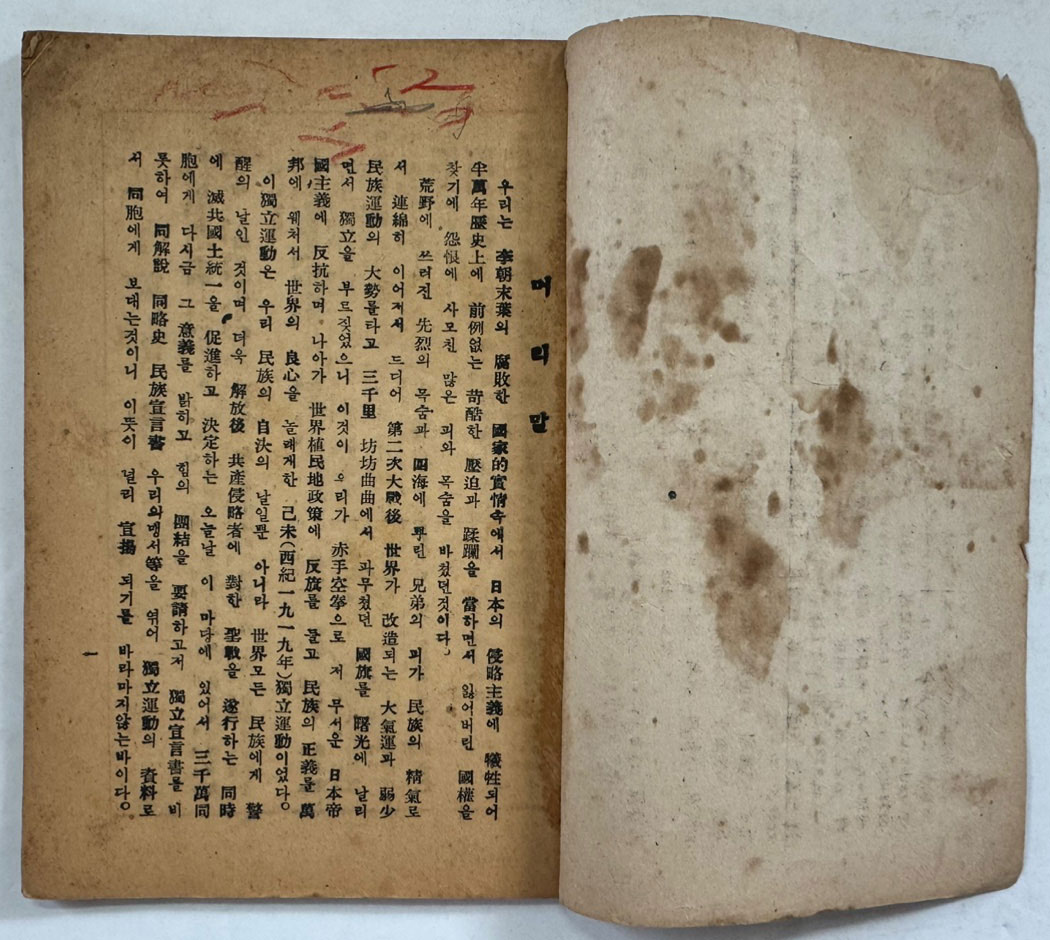 머리말
우리는 李朝末葉의 腐敗한 國家的實情속에서 日本의 侵略主義에 犧牲되어
半萬年歷史上에 前例없는 苛酷한 壓迫과 蹂躪을 當하면서 잃어버린 國權을
찾기에 怨恨에 사모친 많은 피와 목숨을 바쳤던것이다.
荒野에 쓰러진 先烈의 목숨과 四海에 뿌린 兄弟의 피가 民族의 精氣로
서 連綿히 이어져서 드디어 第二次大戰後 世界가 改造되는 大氣運과 弱少
民族運動의 大勢를타고 三千里 坊坊曲曲에서 파무쳤던 國旗를 曙光에 날리
면서 獨立을 부르짖었으니 이것이 우리가 赤手空拳으로 저 무서운 日本帝
國主義에 反抗하며 나아가 世界植民地政策에 反旗를 들고 民族의 正義를 萬
邦에 웨처서 世界의 良心을 놀래게한 己未(西紀一九一九年)獨立運動이었다。
이獨立運動은 우리 民族의 自決의 날일뿐 아니라 世界모든 民族에게 警
醒의 날인 것이며 더욱 解放後 共產侵略者에 對한 聖戰을 遂行하는 同時
에 滅共國土統一을 促進하고 決定하는 오늘날 이 마당에 있어서 三千萬同
胞에게 다시금 그 意義를 밝히고 힘의 團結을 要請하고저 獨立宣言書를 비
롯하여 同解說 同略史 民族宣言書 우리의맹서等을 엮어 獨立運動의 資料로
서 同胞에게 보내는것이니 이뜻이 널리 宣揚 되기를 바라마지않는바이다。
一